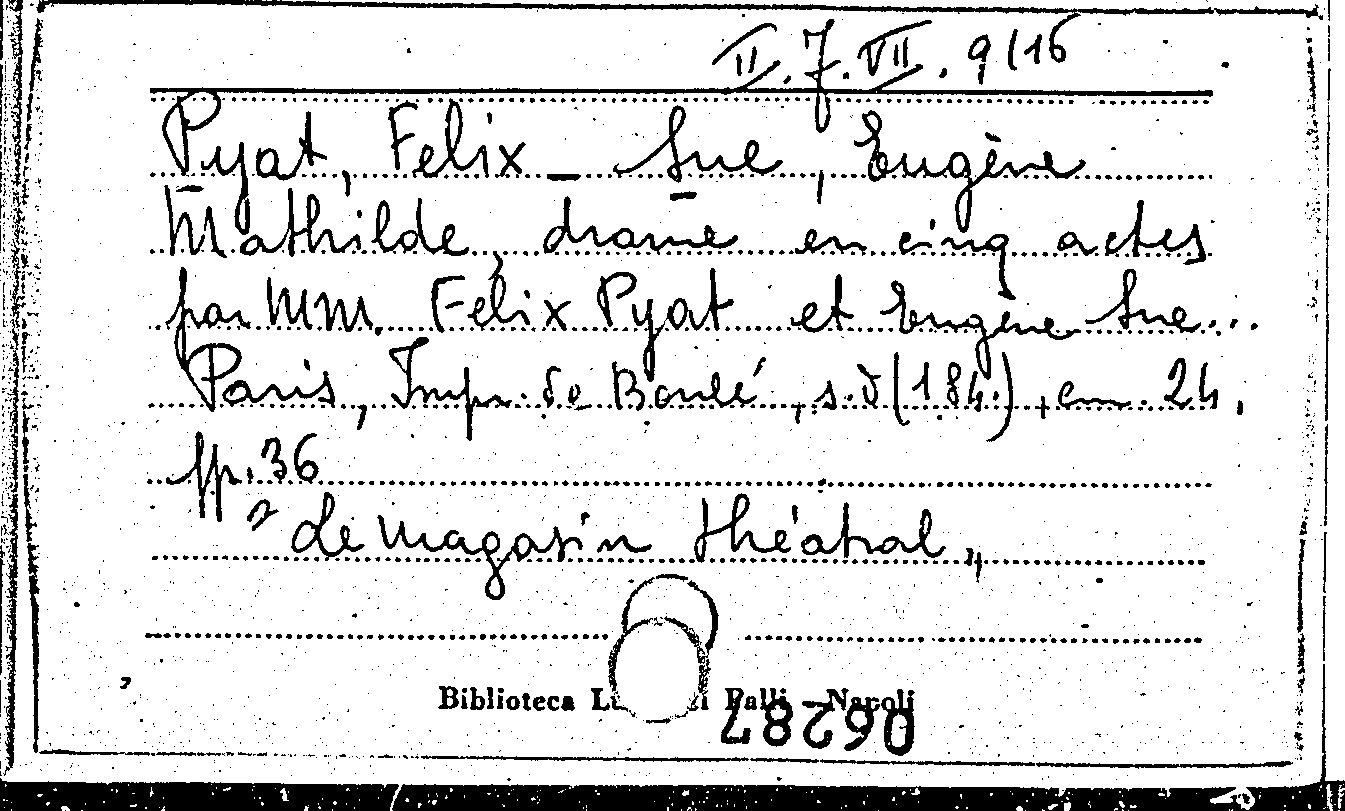 II. 7. VII. 9/16
Pyat, Felix - Sue, Eugène
Mathilde, drame en cinq actes
par MM. Felix Pyat et Eugène Sue...
Paris, Impr. de Boulé, s.d (184.), cm. 24,
pp. 36
"Le magasin théatral"
Biblioteca Lu i Palli - Napoli
06287